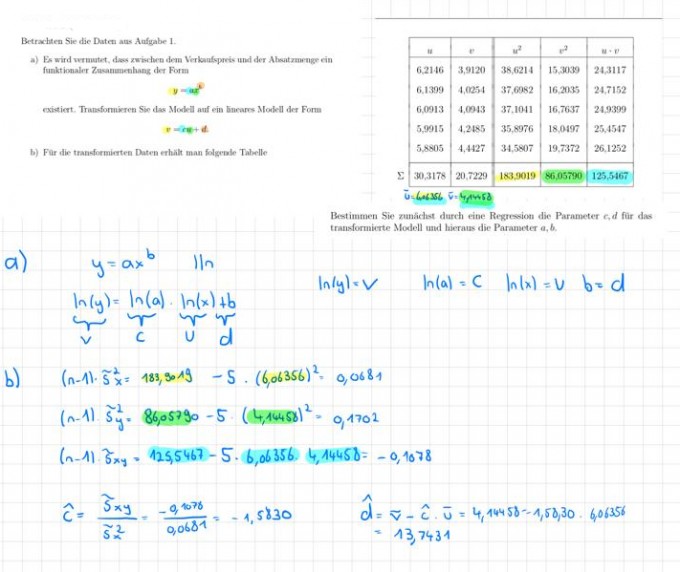 Betrachten Sie die Daten aus Aufgabe 1.
a) Es wird vermutet, dass zwischen dem Verkaufspreis und der Absatzmenge ein
funktionaler Zusammenhang der Form
y = ax^b
existiert. Transformieren Sie das Modell auf ein lineares Modell der Form
v = cu + d.
b) Für die transformierten Daten erhält man folgende Tabelle
u v u² v² u · v
6,2146 3,9120 38,6214 15,3039 24,3117
6,1399 4,0254 37,6982 16,2035 24,7152
6,0913 4,0943 37,1041 16,7637 24,9399
5,9915 4,2485 35,8976 18,0497 25,4547
5,8805 4,4427 34,5807 19,7372 26,1252
Σ 30,3178 20,7229 183,9019 86,05790 125,5467
ū=6,06356 v̄=4,14458
Bestimmen Sie zunächst durch eine Regression die Parameter c, d für das
transformierte Modell und hieraus die Parameter a, b.
a) y = ax^b | ln
ln(y) = ln(a) · ln(x) + b
v c u d
ln(y) = v ln(a) = c ln(x) = u b = d
b) (n-1) · s̃²x = 183,9019 - 5 · (6,06356)² = 0,0681
(n-1) · s̃²y = 86,05790 - 5 · (4,14458)² = 0,1702
(n-1) · s̃xy = 125,5467 - 5 · 6,06356 · 4,14458 = -0,1078
ĉ = s̃xy / s̃²x = -0,1078 / 0,0681 = -1,5830
d̂ = v̄ - ĉ · ū = 4,14458 - -1,58,30 · 6,06356
= 13,7431